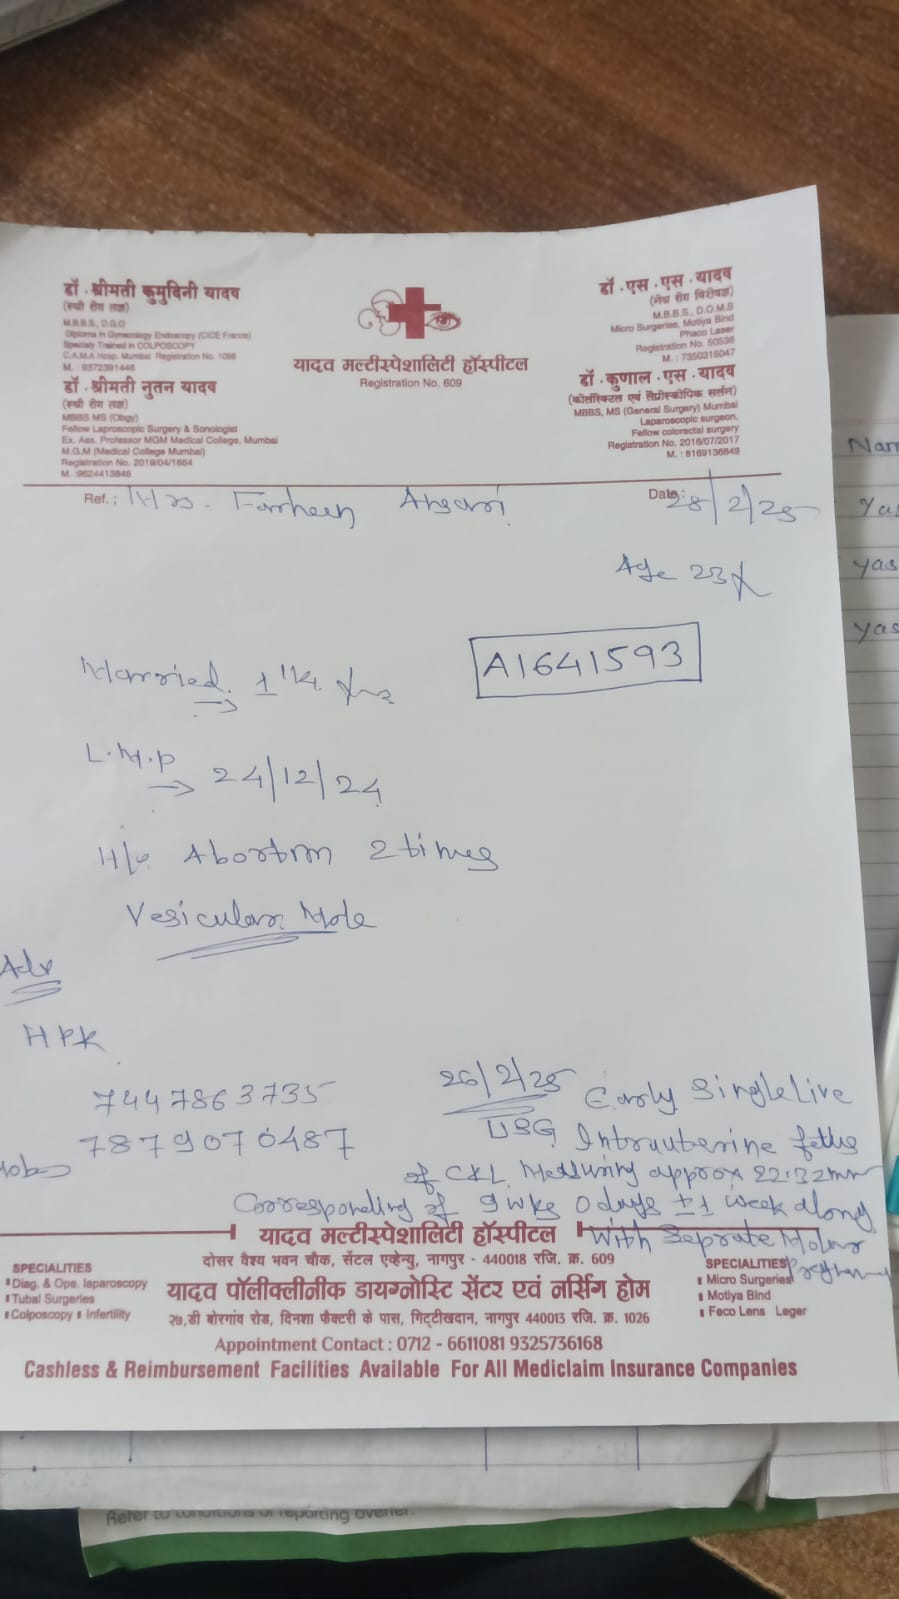 डॉ. श्रीमती कुमुदिनी यादव
(स्त्री रोग तज्ञ)
M.B.B.S., D.G.O
Diploma in Gynaecology Endoscopy (CICE France)
Specialy Trained in COLPOSCOPY
C.A.M.A Hosp. Mumbai Registration No. 1098
M. : 9372391446
डॉ. श्रीमती नुतन यादव
(स्त्री रोग तज्ञ)
MBBS MS (Obgy)
Fellow Laproscopic Surgery & Sonologist
Ex. Ass. Professor MGM Medical College, Mumbai
M.G.M (Medical College Mumbai)
Registration No. 2019/04/1664
यादव मल्टीस्पेशालिटी हॉस्पीटल
Registration No. 609
डॉ. एस. एस. यादव
(नेत्र रोग विशेषज्ञ)
M.B.B.S., D.O.M.S
Micro Surgeries, Motiya Bind
Phaco Laser
Registration No. 50536
M. : 7350315047
डॉ. कुणाल. एस. यादव
MBBS, MS (General Surgery) Mumbai
Laparoscopic surgeon,
Fellow colorectal surgery
Registration No. 2016/07/2017
M. : 8169136649
Ref. : Mrs. Farheen Ansari
Date : 28/2/25
Age 23
Married → 1 1/4 yrs
A1641593
L.M.P → 24/12/24
H/o Abortion 2 times
Vesicular Mole
Adv
HPR
7447863735
7879070487
26/2/25
USG Early Single Live
Intrauterine fetus
of CRL Measuring approx 22.32mm
Corresponding of 9 wks 0 days ±1 week along
With Seprate Molar
यादव मल्टीस्पेशालिटी हॉस्पीटल
दोसर वैश्य भवन चौक, सेंटल एव्हेन्यु, नागपुर - 440018 रजि. क्र. 609
यादव पॉलीक्लीनीक डायग्नोस्टि सेंटर एवं नर्सिंग होम
२७,डी बोरगांव रोड, दिनशा फैक्टरी के पास, गिट्टीखदान, नागपुर 440013 रजि. क्र. 1026
SPECIALITIES
Diag. & Ope. laparoscopy
Tubal Surgeries
Colposcopy Infertility
SPECIALITIES
Micro Surgeries
Motiya Bind
Feco Lens Leger
Appointment Contact : 0712 - 6611081 9325736168
Cashless & Reimbursement Facilities Available For All Mediclaim Insurance Companies
Nam
Yas
yas
yas